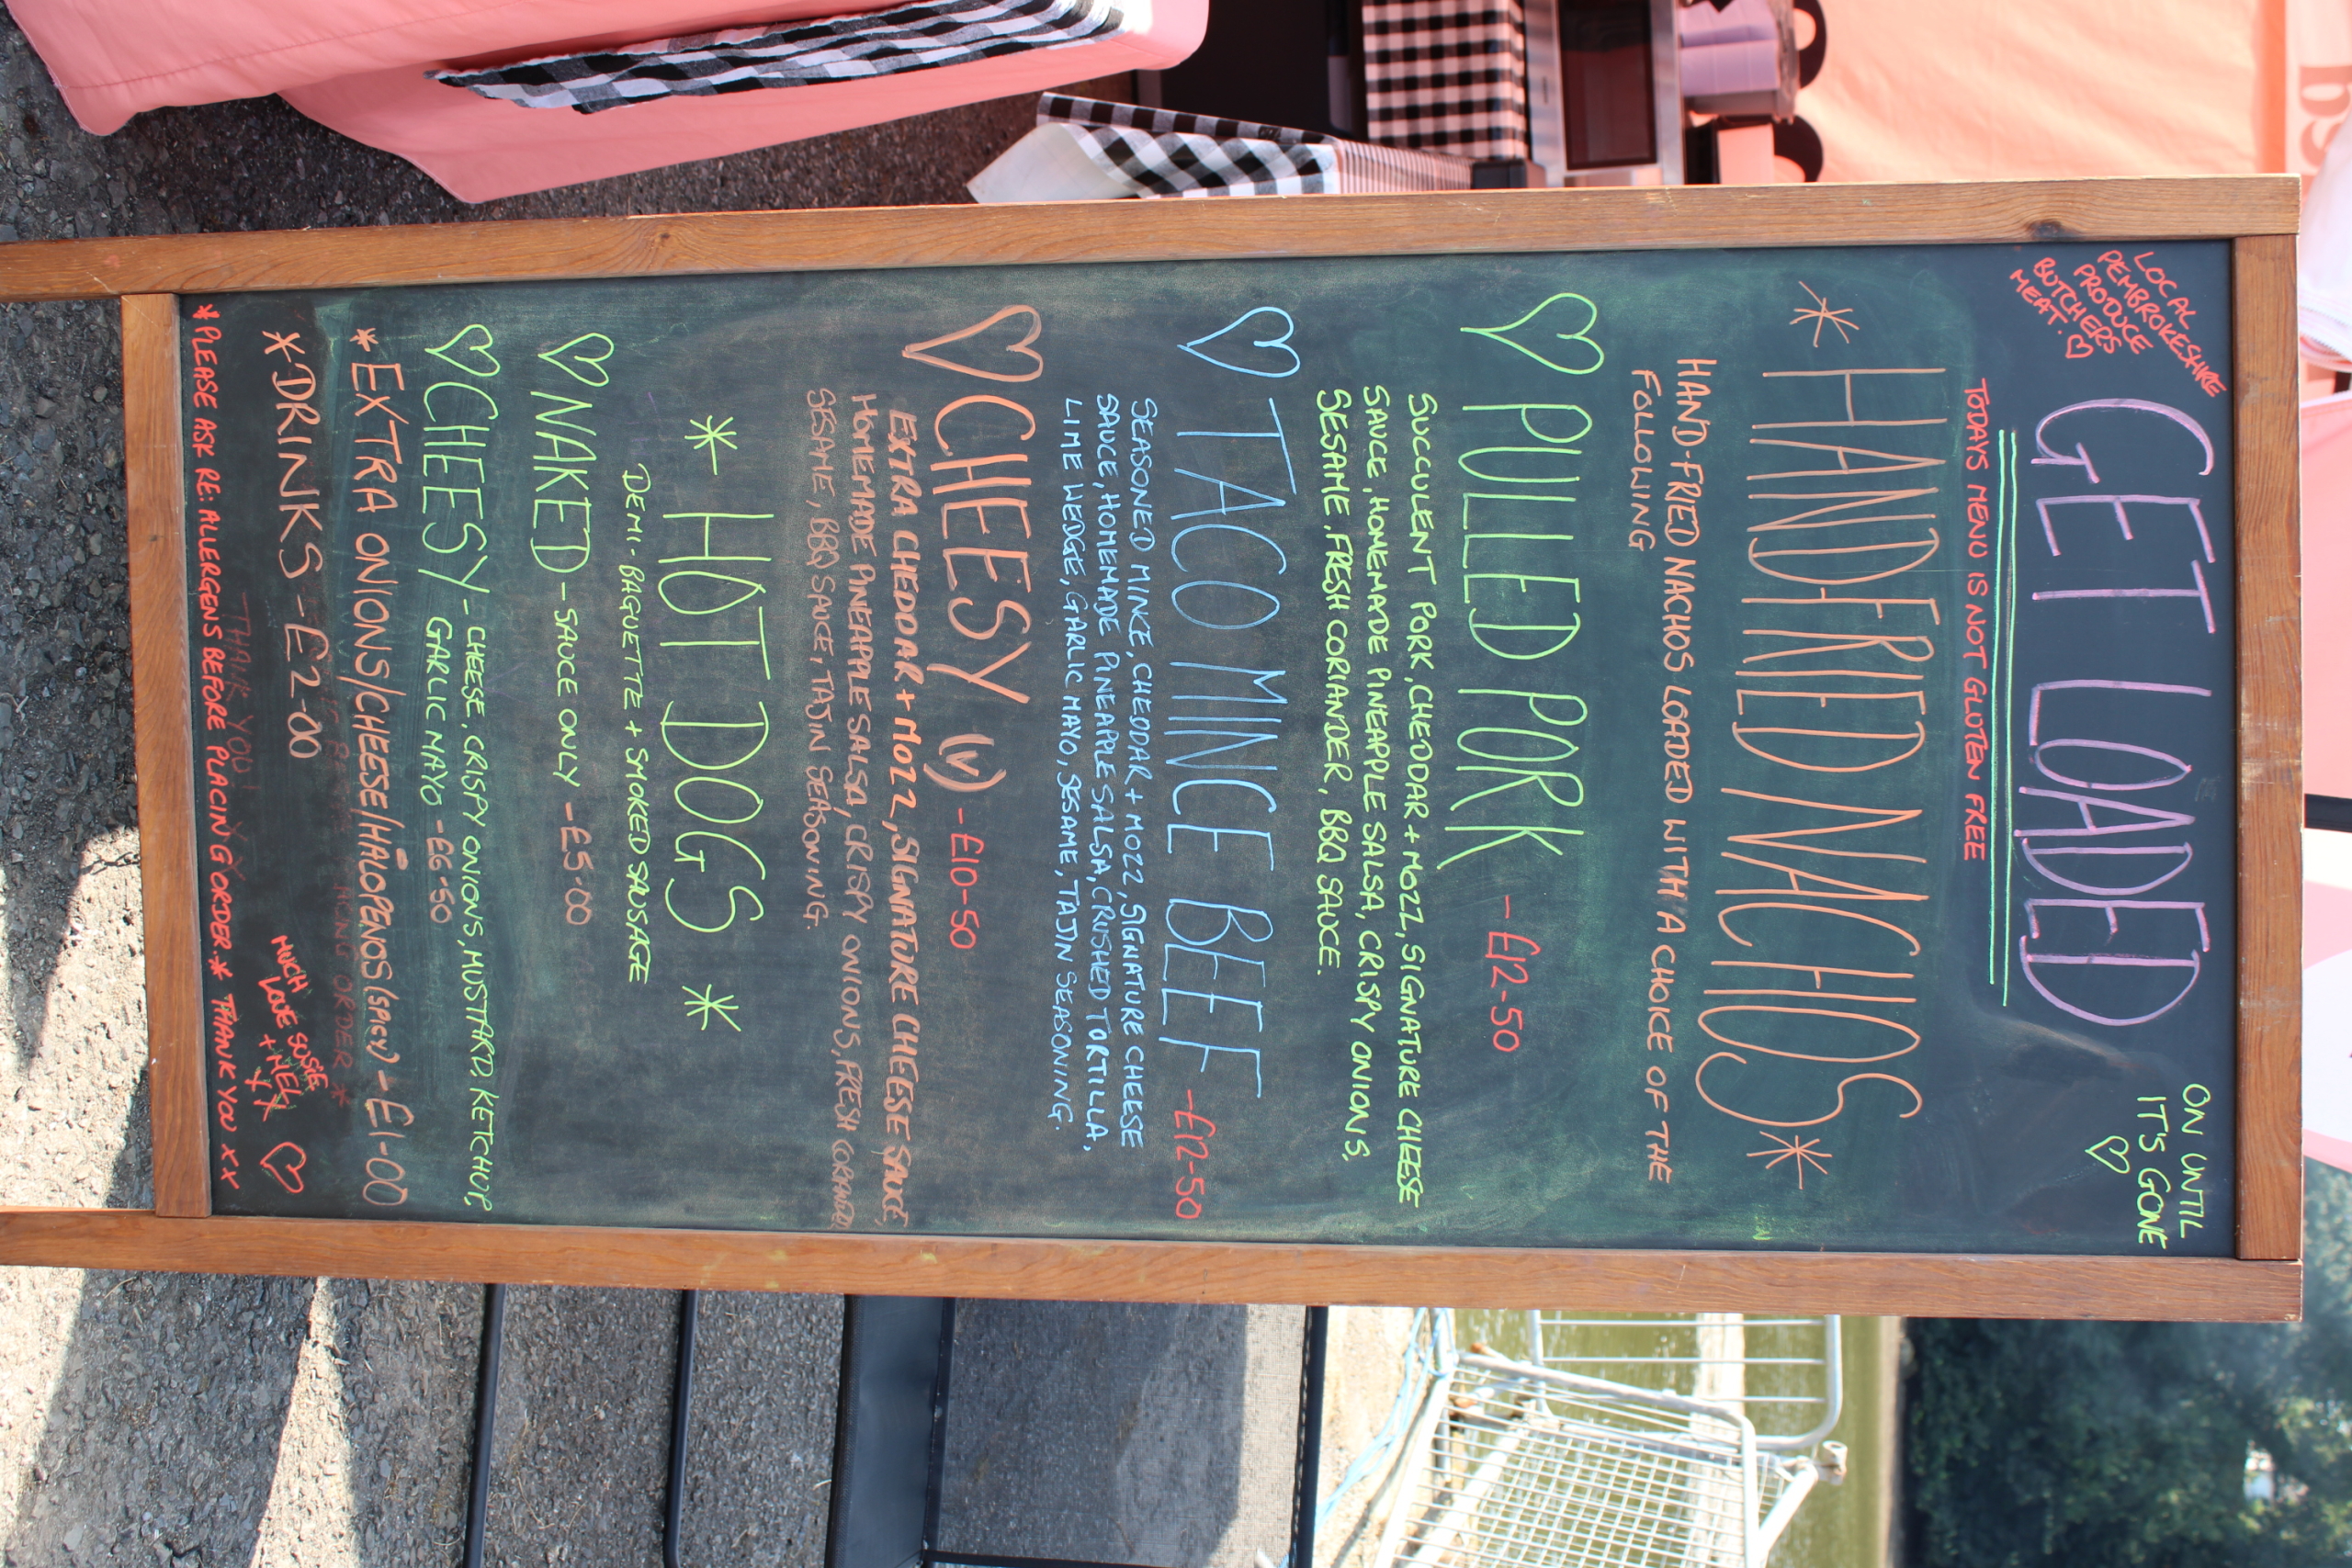 LOCAL
PEMBROKESHIRE
PRODUCE
BUTCHERS
MEAT. ♡
GET LOADED
ON UNTIL
IT'S GONE
♡
TODAYS MENU IS NOT GLUTEN FREE
* HANDFRIED NACHOS *
HAND-FRIED NACHOS LOADED WITH A CHOICE OF THE
FOLLOWING
♡ PULLED PORK - £12-50
SUCCULENT PORK, CHEDDAR + MOZZ, SIGNATURE CHEESE
SAUCE, HOMEMADE PINEAPPLE SALSA, CRISPY ONIONS,
SESAME, FRESH CORIANDER, BBQ SAUCE.
♡ TACO MINCE BEEF - £12-50
SEASONED MINCE, CHEDDAR + MOZZ, SIGNATURE CHEESE
SAUCE, HOMEMADE PINEAPPLE SALSA, CRUSHED TORTILLA,
LIME WEDGE, GARLIC MAYO, SESAME, TAJIN SEASONING.
♡ CHEESY (V) - £10-50
EXTRA CHEDDAR + MOZZ, SIGNATURE CHEESE SAUCE,
HOMEMADE PINEAPPLE SALSA, CRISPY ONIONS, FRESH CORIANDER,
SESAME, BBQ SAUCE, TAJIN SEASONING.
* HOT DOGS *
DEMI-BAGUETTE + SMOKED SAUSAGE
♡ NAKED - SAUCE ONLY - £5-00
♡ CHEESY - CHEESE, CRISPY ONIONS, MUSTARD, KETCHUP,
GARLIC MAYO - £6-50
* EXTRA ONIONS/CHEESE/HALOPENOS (SPICY) - £1-00
* DRINKS - £2-00
MUCH
LOVE SUSIE
+ MEL
X X ♡
THANK YOU X X
* PLEASE ASK RE: ALLERGENS BEFORE PLACING ORDER * THANK YOU X X